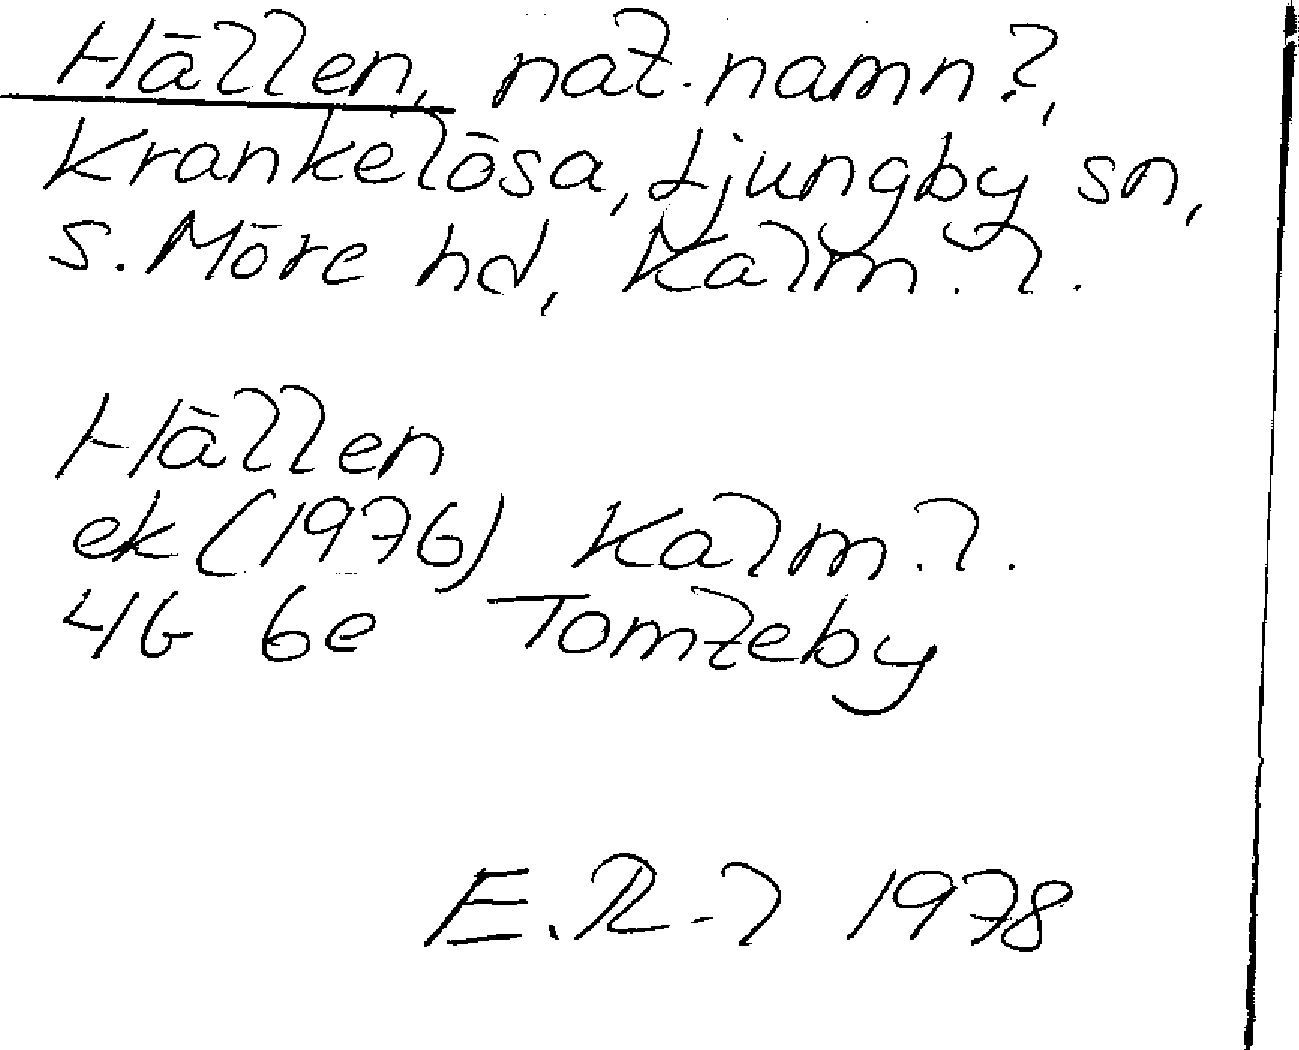 Hällen, nat. namn?,
Krankelösa, Ljungby sn,
S. Möre hd, Kalm. l.
Hällen
ek (1976) Kalm. l.
4G 6e Tomteby
E. R-l 1978